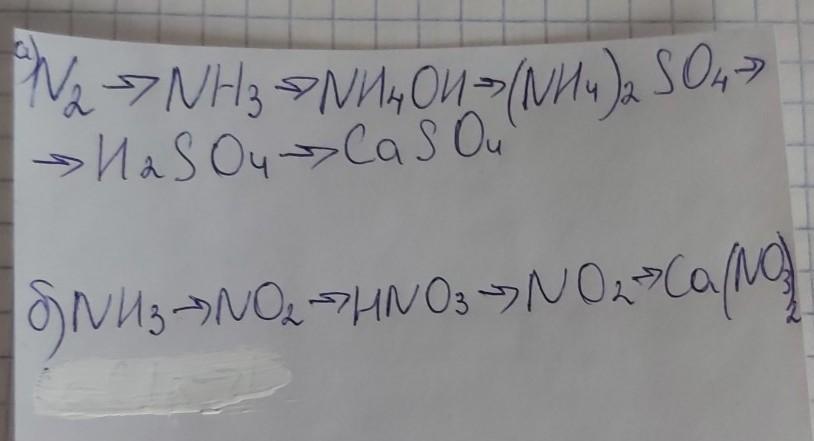 а) N₂ → NH₃ → NH₄OH → (NH₄)₂ SO₄ →
→ H₂SO₄ → CaSO₄
б) NH₃ → NO₂ → HNO₃ → NO₂ → Ca(NO₃)₂